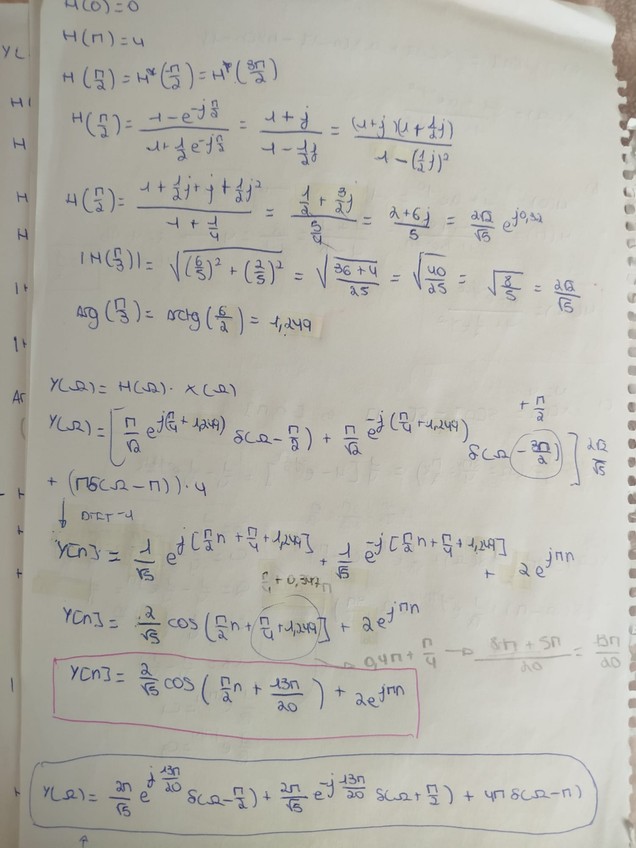 H(0) = 0
H(π) = 4
H(π/2) = H*(π/2) = H*(3π/2)
H(π/2) = (1 - e^{-jπ/2}) / (1 + 1/2 e^{-jπ/2}) = (1 + j) / (1 - 1/2 j) = ((1+j)(1 + 1/2 j)) / (1 - (1/2 j)²)
H(π/2) = (1 + 1/2 j + j + 1/2 j²) / (1 + 1/4) = (1/2 + 3/2 j) / (5/4) = (2+6j)/5 = 2√2/√5 e^{j0,32}
|H(π/3)| = √((6/5)² + (2/5)²) = √((36+4)/25) = √(40/25) = √(8/5) = 2√2/√5
Arg(π/3) = arctg(6/2) = 1,249
Y(Ω) = H(Ω) · X(Ω)
Y(Ω) = [π/√2 e^{j(π/4+1,249)} δ(Ω - π/2) + π/√2 e^{-j(π/4+1,249)} δ(Ω - 3π/2)] 2√2/√5
+ π/2
+ (πδ(Ω - π)) · 4
↓ DTFT-1
Y[n] = 1/√5 e^{j[π/2 n + π/4 + 1,249]} + 1/√5 e^{-j[π/2 n + π/4 + 1,249]} + 2e^{jπn}
π/4 + 0,397π
Y[n] = 2/√5 cos[π/2 n + π/4 + 1,249] + 2e^{jπn}
→ 0,4π + π/4 → (8π + 5π)/20 = 13π/20
Y[n] = 2/√5 cos(π/2 n + 13π/20) + 2e^{jπn}
Y(Ω) = 2π/√5 e^{j13π/20} δ(Ω - π/2) + 2π/√5 e^{-j13π/20} δ(Ω + π/2) + 4π δ(Ω - π)